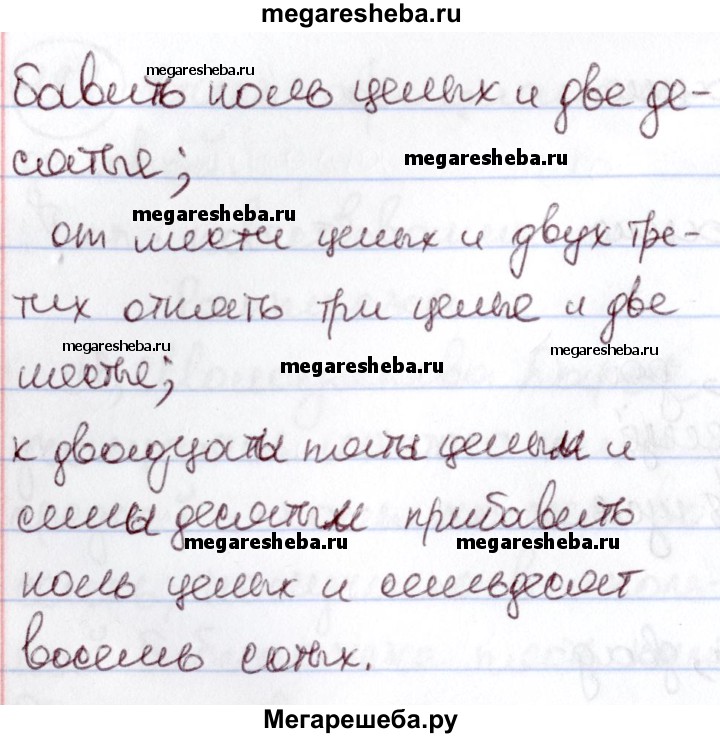 megaresheba.ru
megaresheba.ru
бавить ноль целых и две де-
megaresheba.ru
сятые;
megaresheba.ru
от шести целых и двух тре-
тих отнять три целые и две
megaresheba.ru
megaresheba.ru
megaresheba.ru
шестые;
к двадцати пяти целым и
семи десятым прибавить
megaresheba.ru
megaresheba.ru
ноль целых и семьдесят
восемь сотых.
Мегарешеба.ру